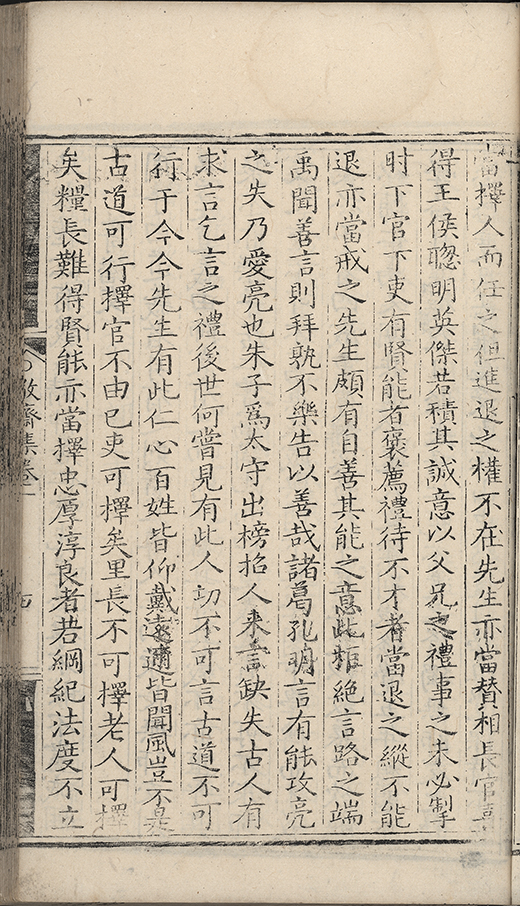 當擇人而任之但進退之權不在先生亦當賛相長官
得王侯聦明英傑若積其誠意以父兄之禮事之未必掣
时下官下吏有賢能者褒薦禮待不才者當退之縱不能
退亦當戒之先生頗有自善其能之意此拒絶言路之端
禹聞善言則拜孰不樂告以善哉諸葛孔明言有能攻亮
之失乃愛亮也朱子爲太守出榜招人来言缺失古人有
求言乞言之禮後世何嘗見有此人切不可言古道不可
行于今今先生有此仁心百姓皆仰戴遠邇皆聞風豈不是
古道可行擇官不由已吏可擇矣里長不可擇老人可擇
矣糧長難得賢能亦當擇忠厚淳良者若綱紀法度不立
敬齋集卷一